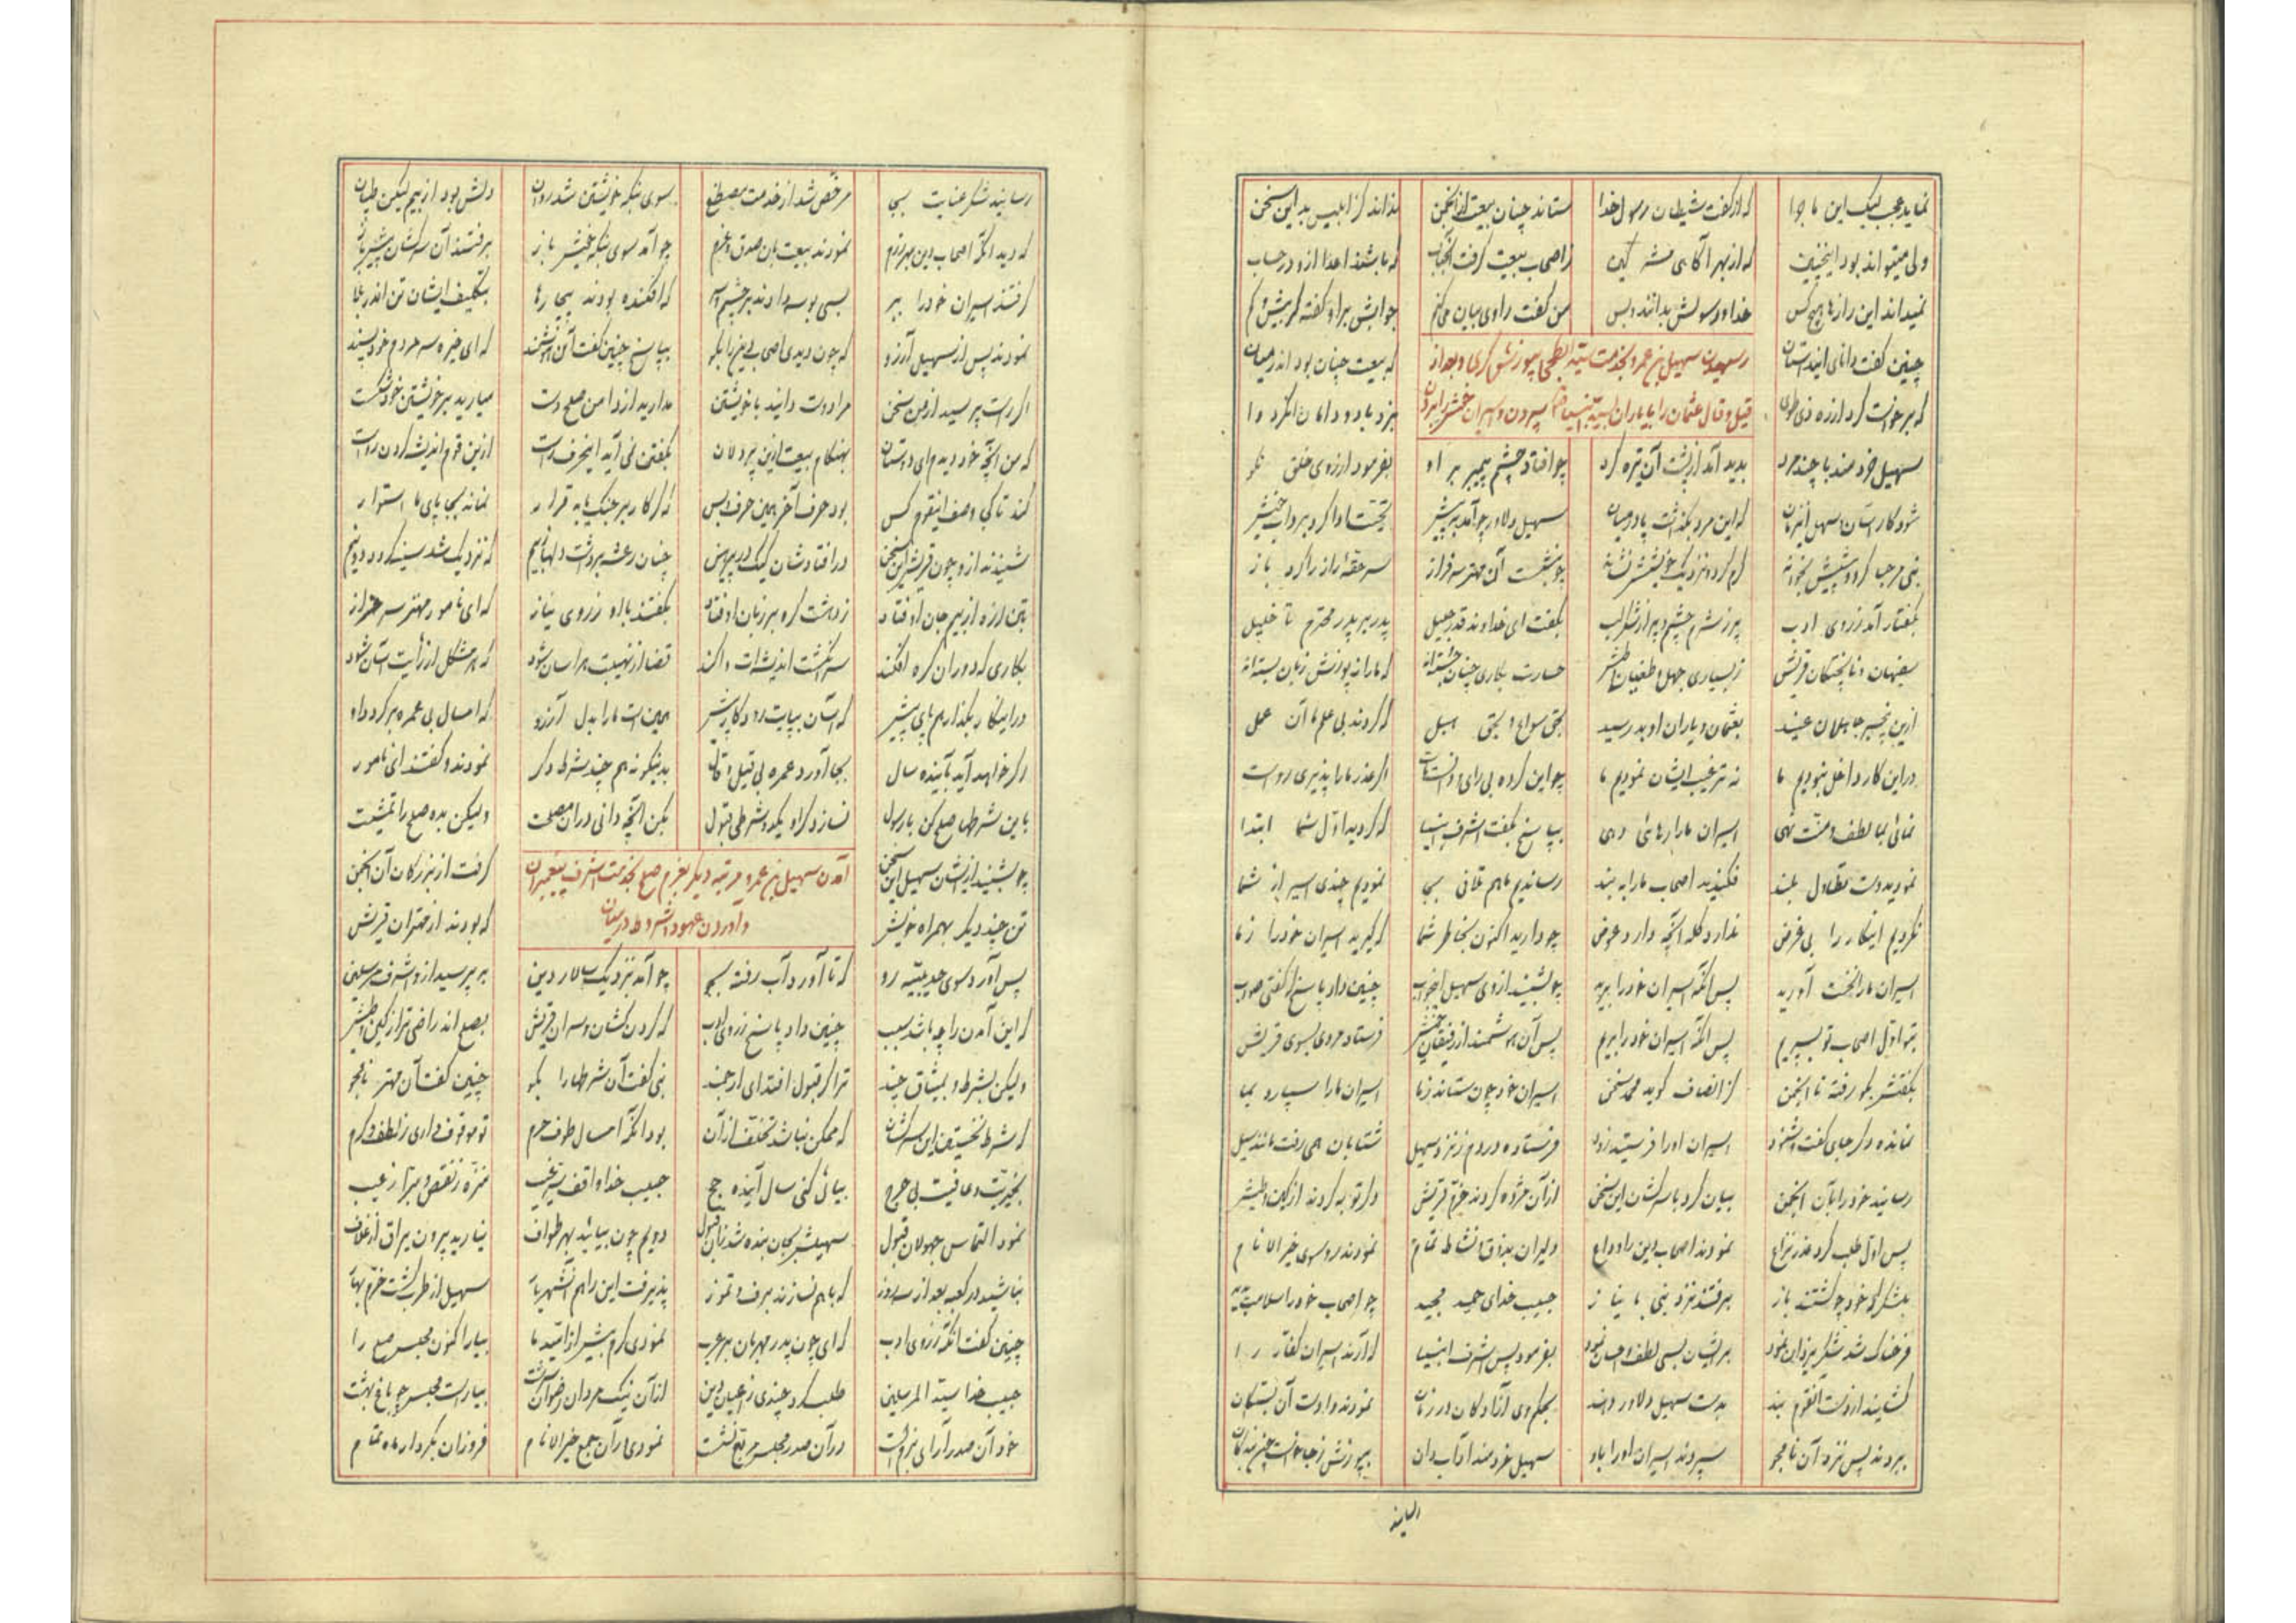 نماید عجب لیک این ماجرا که از گفت شیطان رسول خدا ستاند چنان بیعت از انجمن نداند کز ابلیس بد این سخن
ولی میتواند بود اینچنین که از بهر آگاهی زاصحاب بیعت گرفت آنجناب که باشند اعدا ازو در حساب
نمیداند این رازها هیچ کس خدا و رسولش بدانند و بس من گفت راوی بیان می‌کنم جوابش برو گفته گر بیش و کم
چنین گفت دانای این داستان که بیعت چنان بود اندر میان
رسیدن سهیل بن عمرو بخدمت سید ابطحی بپوزش گری و بعد از
قیل و قال عثمان را با یاران سپردن و اسیران خویش را بردن
سهیل خردمند با چند مرد بدید آمد از پشت آن تیره گرد چو افتاد چشم پیمبر بر او بفرمود از روی خلق نکو
شود کار آسان سهل این زمان که این مرد بگذاشت پا در میان سهیل دلاور چو آمد به پیش تحیت ادا کرد بر داب خویش
نبی مرحبا کرد و پیشش بخواند کرم کرد و نزدیک خویشش نشاند چو بنشست آن مهتر سرفراز سر حقه راز را کرد باز
بگفتار آمد ز روی ادب پر از شرم چشم و پر از شکر لب بگفت ای خداوند قدر جلیل پدر بر پدر محترم تا خلیل
سفیهان و ناپختگان قریش ز بسیاری جهل و طغیان و طیش جسارت بکاری چنان جسته‌اند که ما را ز پوزش زبان بسته‌اند
ازین پیش جاهلان عنید بعثمان و یاران او بد رسید بحق سواع و بحق هبل که کردند بی علم ما آن عمل
در این کار داخل نبودیم ما نه ترغیب ایشان نمودیم ما چو این کرده بی رای ما اگر عذر ما را پذیری رواست
نمائی بما لطف و منت نهی اسیران ما را رهائی دهی بپاسخ بگفت اشرف انبیا که گردید اول شما ابتدا
نمودید دست تطاول بلند فکندید اصحاب ما را به بند رساندیم ما هم تلافی بجا نمودیم چندی اسیر از شما
نکردیم اینکار را بی غرض ندارد گله آنچه دارد عوض چو دارید اکنون بخاطر شما که گیرید اسیران خود را ز ما
اسیران ما را نخست آورید پس آنگه اسیران خود را برید چو بشنید از وی سهیل اینجواب چنین داد پاسخ که گفتی صواب
بتو اول اصحاب تو بسپریم پس آنگه اسیران خود را بریم پس آن هوشمند از رفیقان خویش فرستاد مردی بسوی قریش
بگفتش بگو رفته با انجمن کز انصاف گوید محمد سخن اسیران خود چون ستاند ز ما اسیران ما را سپارد بما
نمانده دگر جای گفت و شنود اسیران او را فرستید زود فرستاده در دم ز نزد سهیل شتابان همی رفت مانند سیل
رسانید خود را بآن انجمن بیان کرد با سرکشان این سخن از آن مژده کردند خرم قریش دگر توبه کردند از کین و طیش
پس اول طلب کرد عذر نزاع نمودند اصحاب دین را وداع دلیران بذوق و نشاط تمام نمودند رو سوی خیر الانام
بلشکرگه خود چو گشتند باز برفتند نزد نبی با نیاز حبیب خدای حمید مجید چو اصحاب خود را سلامت بدید
فرحناک شد شکر یزدان نمود بر ایشان بسی لطف و احسان نمود بفرمود پس اشرف انبیا که آرند اسیران کفار را
گشایند از دست آنقوم بند بدست سهیل دلاور دهند بحکم وی آزادگان در زمان نمودند وا دست آن بستگان
ببردند پس نزد آن نامجو سپردند اسیران او را باو سهیل خردمند آداب دان بپوزش ز جا خاست چون بندگان
رسانید شکر عنایت بجا مرخص شد از خدمت مصطفی سوی بنگه خویشتن شد روان دلش بود از بیم لیکن طپان
که دید آنکه اصحاب دین سربسر نمودند بیعت بآن صدق و عزم چو آمد سوی بنگه خویش باز برفتند آن سرکشان پیشباز
گرفتند اسیران خود را ببر بسی بوسه دادند بر چشم و سر که افکنده بودند بیچاره‌ها بتکلیف ایشان تن اندر بلا
نمودند پس از سهیل آرزو که چون دیدی اصحاب بپاسخ چنین گفت آن هوشمند که ای خیره سر مردم خودپسند
اگر راست پرسید از من سخن مرا دوست دانید با خویشتن مدارید از دامن صلح دست میارید بر خویشتن خود شکست
که من آنچه خود دیدم ای دوستان بهنگام بیعت ازین پردلان بگفتن نمی آید اینحرف راست ازین قوم اندیشه کردن رواست
کند تا کی وصف اینقوم کس بود حرف آخر همین حرف و بس که گر کار بر جنگ یابد قرار نماند بجا پای ما استوار
شنیدند ازو چون قریش این سخن در افتادشان لیک در پیرهن چنان رعشه برداشت دلها ز بیم که نزدیک شد سینه گردد دو نیم
بتن لرزه از بیم جان اوفتاد ز دهشت گره بر زبان اوفتاد بگفتند با او ز روی نیاز که ای نامور مهتر سرفراز
بکاری که دوران گره افکند سر انگشت اندیشه‌ات وا کند قضا از نهیبت هراسان شود که هر مشکل از رایت آسان شود
در اینکار بگذار هم پای پیش که آسان بپایت رود کار پیش همین است ما را بدل آرزو که امسال بی عمره برگردد او
اگر خواهد آید بآینده سال بجا آورد عمره بی قیل و قال بدینگونه هم چند شرط دگر نمودند و گفتند ای نامور
باین شرطها صلح کن با رسول نسازد گر او یکدو شرطی قبول بکن آنچه دانی در آن مصلحت ولیکن بده صلح را تمشیت
چو بشنید ازیشان سهیل این سخن گرفت از بزرگان آن انجمن
آمدن سهیل بن عمرو مرتبه دیگر بعزم صلح بخدمت اشرف پیغمبران
و آوردن عهود و شروط در میان
تن چند دیگر بهمراه خویش که بودند از مهتران قریش
پس آورد سوی حدیبیه رو که تا آورد آب رفته بجو چو آمد بنزدیک سالار دین بپرسید ازو اشرف مرسلین
که این آمدن را چه باشد سبب چنین داد پاسخ ز روی ادب که گردنکشان و سران قریش بصلح اند راضی تر از کین و طیش
ولیکن بشرط و بمیثاق چند ترا گر قبول افتد ای ارجمند نبی گفت آن شرطها را بگو چنین گفت آن مهتر نامجو
که شرط نخستین این سرکشان که ممکن نباشد تخلف از آن بود آنکه امسال طوف حرم تو موقوف داری ز لطف و کرم
بخیریت و عافیت بی حرج بیائی کنی سال آینده حج حبیب خدا واقف سر غیب منزه ز نقص و مبرا ز عیب
نمود التماس جهولان قبول سهیلش بجان بنده شد زان قبول دویم چون بیائید بهر طواف نیارید بیرون یراق از غلاف
نباشید در کعبه بعد از سه روز که باهم نسازند برف و تموز پذیرفت این را هم آن شهریار سهیل از طرب گشت خرم بهار
چنین گفت آنگه ز روی ادب که ای چون پدر مهربان بر عرب نمودی کرم بیش از امید ما بیارا کنون مجلس صلح را
حبیب خدا سید المرسلین طلب کرد چندی ز اعیان دین از آن نیک مردان رضوان سرشت بیاراست مجلس چو باغ بهشت
خود آن صدر آرای بزم الست در آن صدر مجلس مربع نشست نمودی در آن جمع خیر الانام فروزان بکردار ماه تمام